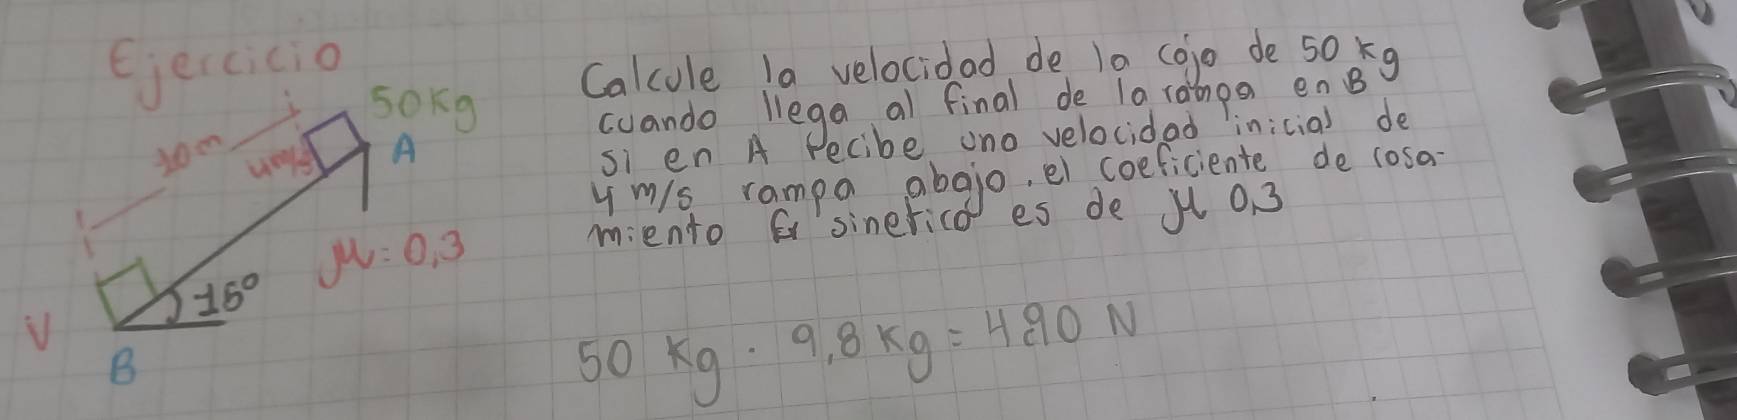 Ejercicio
50Kg
10m
4m/s
A
μ: 0,3
15°
V
B
Calcule la velocidad de la caja de 50 kg
cuando llega al final de la rampa en B
si en A recibe una velocidad inicial de
4 m/s rampa abajo. el coeficiente de rosa-
miento sinetico es de μ 0,3
50 Kg . 9,8 Kg = 490 N